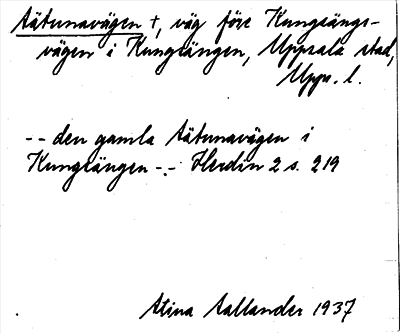 Tätunavägen †, väg före Kungsängs-
vägen i Kungsängen, Uppsala stad,
Upps. l.
-- den gamla Tätunavägen i
Kungsängen -.- Herdin 2 s. 219
Stina Aallander 1937